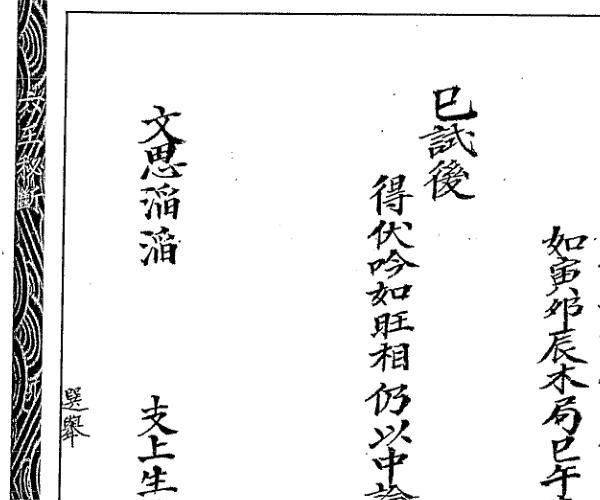 如寅卯辰木局巳午
已試後
得伏吟如旺相仍以中論
文思滔滔
支上生
選舉
六壬秘斷